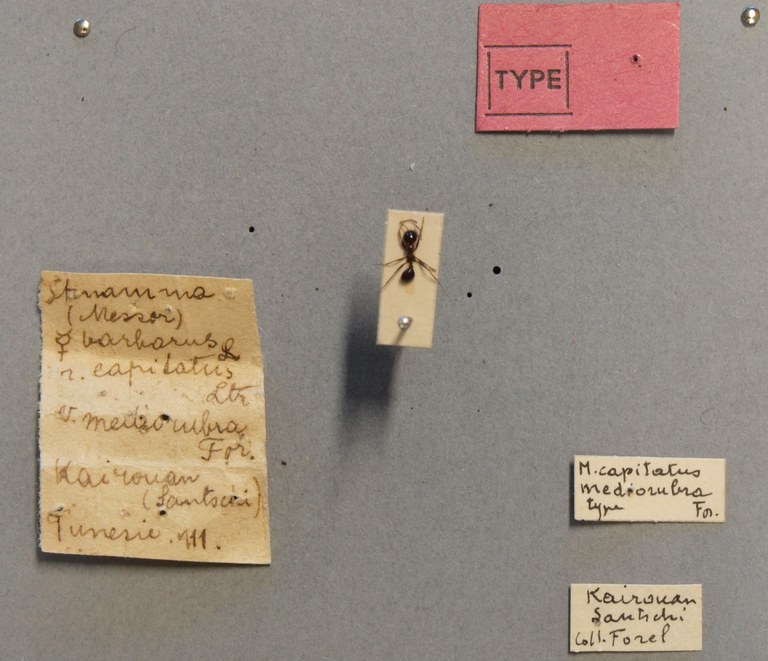 TYPE
Stenamma
(Messor)
☿ barbarus L
r. capitatus
Ltr
v. mediorubra
For.
Kairouan
(Santschi)
Tunesie. III.
M. capitatus
mediorubra
type For.
Kairouan
Santschi
Coll. Forel